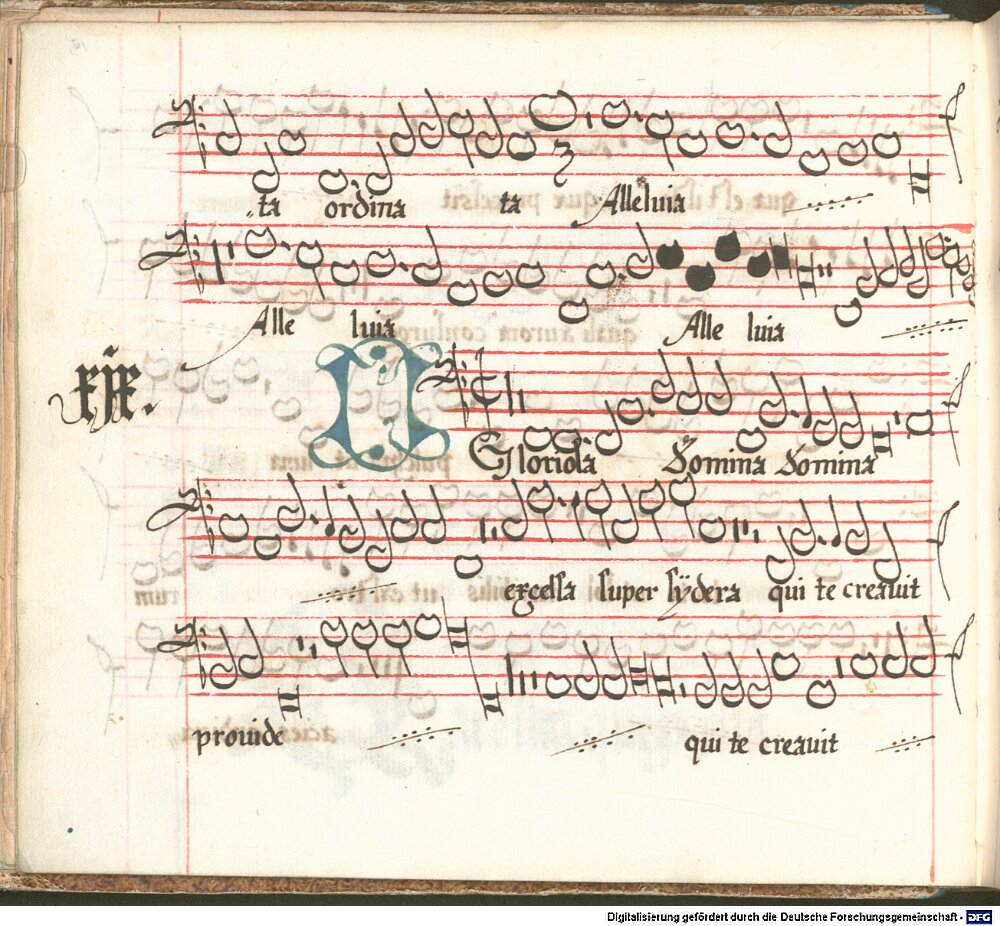 ta ordina ta Alleluia
Alle luia Alle luia
xix.
O Gloriosa Domina Domina
excelsa super sÿdera qui te creauit
prouide qui te creauit
Digitalisierung gefördert durch die Deutsche Forschungsgemeinschaft - DFG